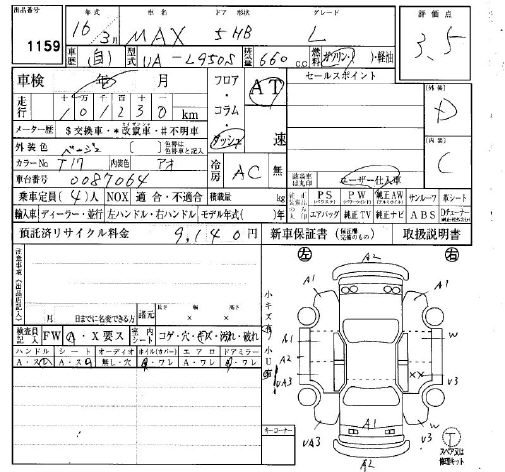 出品番号 1159
年式 16年 3月
車名 MAX
ドア 形状 5 HB
グレード L
評価点 3.5
車歴 (自)
型式 UA-L950S
排気量 660 cc
燃料 ガソリン・軽油
車検 年 月
フロア・コラム・
AT 速
セールスポイント
外装 D
内装 C
走行 十万千百十 101230 km
メーター歴 $交換車・*改竄車・#不明車
外装色 ベージュ
カラーNo T17 内装色 アオ
冷房 AC 無
ユーザー仕入車
車台番号 0087064
乗車定員 (4)人 NOX 適合・不適合 積載量 kg
PS PW 純正AW サンルーフ 革シート
輸入車 ディーラー・並行 左ハンドル・右ハンドル モデル年式( )年 エアバッグ 純正TV 純正ナビ ABS
預託済リサイクル料金 9,140円 新車保証書 取扱説明書
左 右
A2
A1 A1
月 日までに名変できる方
諸元 長さ 幅 高さ
検査員記入 FW A・X要ス 室内シート コゲ・穴・キズ・汚れ・破れ
ハンドル シート オーディオ ホイル(カバー) エアロ ドアミラー
A・スレ A・スレ 無し・穴 A・ワレ A・ワレ A・ワレ
A1 W
A2
UA3 XX U3
A1
UA3 U3
A2
キーコーナー
T
スペア又は修理キット